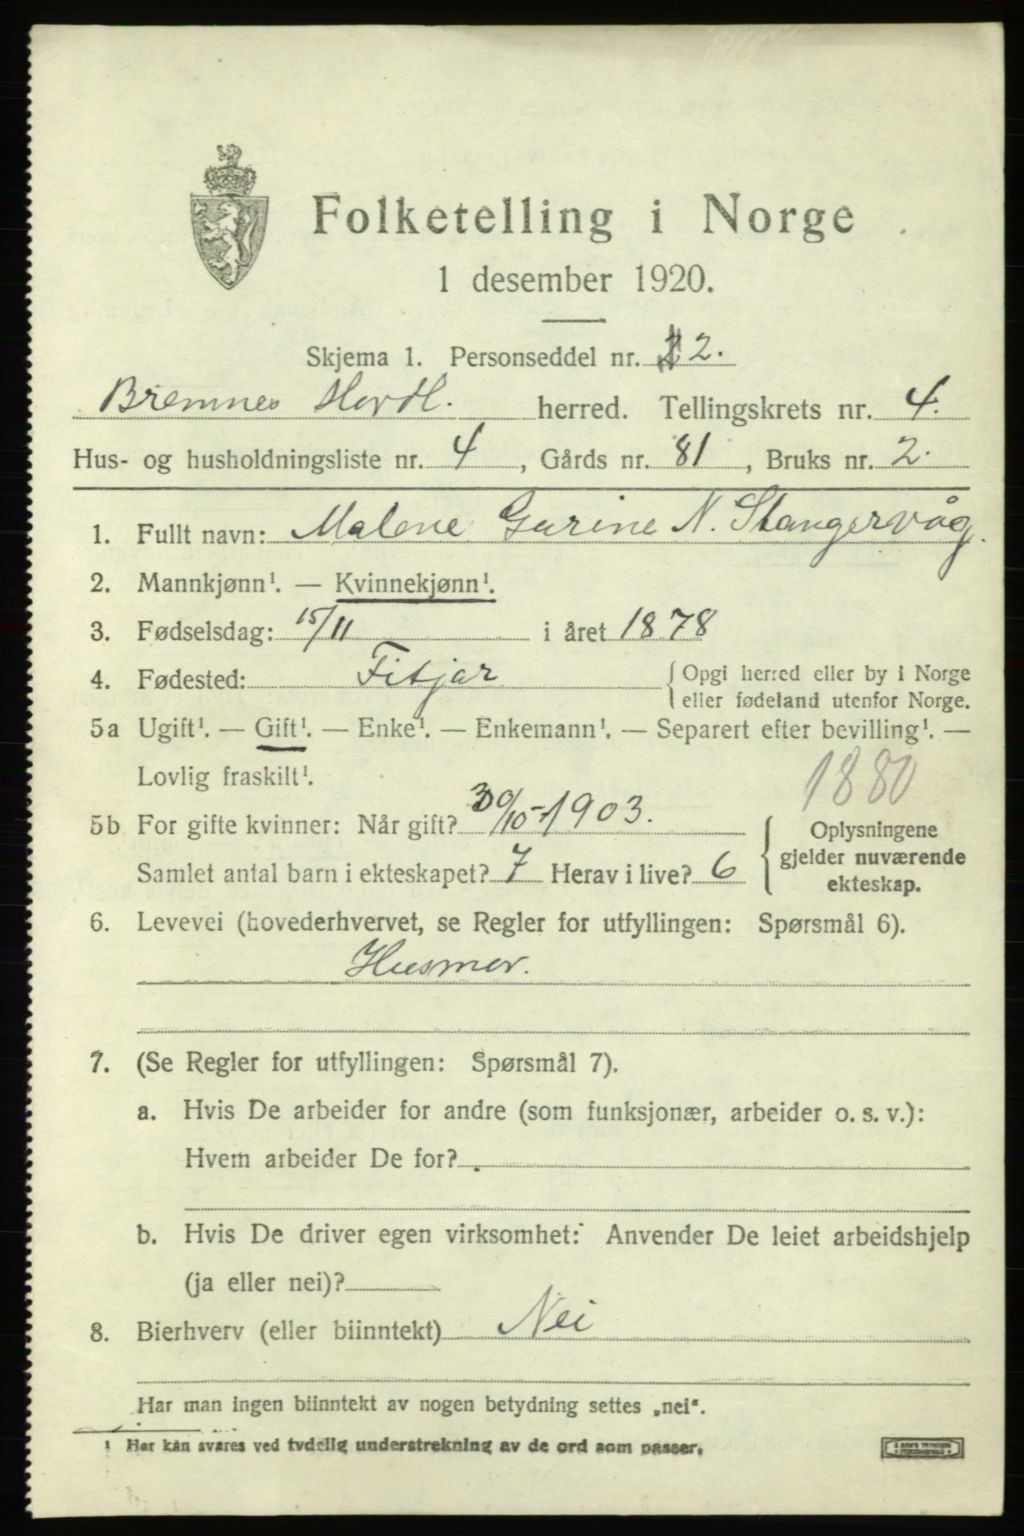 Folketelling i Norge
1 desember 1920.
Skjema 1. Personseddel nr. 2.
Bremnes Hordl. herred. Tellingskrets nr. 4.
Hus- og husholdningsliste nr. 4, Gårds nr. 81, Bruks nr. 2.
1. Fullt navn: Malene Gurine N. Stangervåg.
2. Mannkjønn¹. — Kvinnekjønn¹.
3. Fødselsdag: 15/11 i året 1878
4. Fødested: Fitjar { Opgi herred eller by i Norge
eller fødeland utenfor Norge.
5a Ugift¹. — Gift¹. — Enke¹. — Enkemann¹. — Separert efter bevilling¹. —
Lovlig fraskilt¹.
1880
5b For gifte kvinner: Når gift? 30/10-1903.
Samlet antal barn i ekteskapet? 7 Herav i live? 6
{ Oplysningene
gjelder nuværende
ekteskap.
6. Levevei (hovederhvervet, se Regler for utfyllingen: Spørsmål 6).
Husmor.
7. (Se Regler for utfyllingen: Spørsmål 7).
a. Hvis De arbeider for andre (som funksjonær, arbeider o. s. v.):
Hvem arbeider De for?
b. Hvis De driver egen virksomhet: Anvender De leiet arbeidshjelp
(ja eller nei)?
8. Bierhverv (eller biinntekt) Nei
Har man ingen biinntekt av nogen betydning settes „nei".
¹ Her kan svares ved tydelig understrekning av de ord som passer.